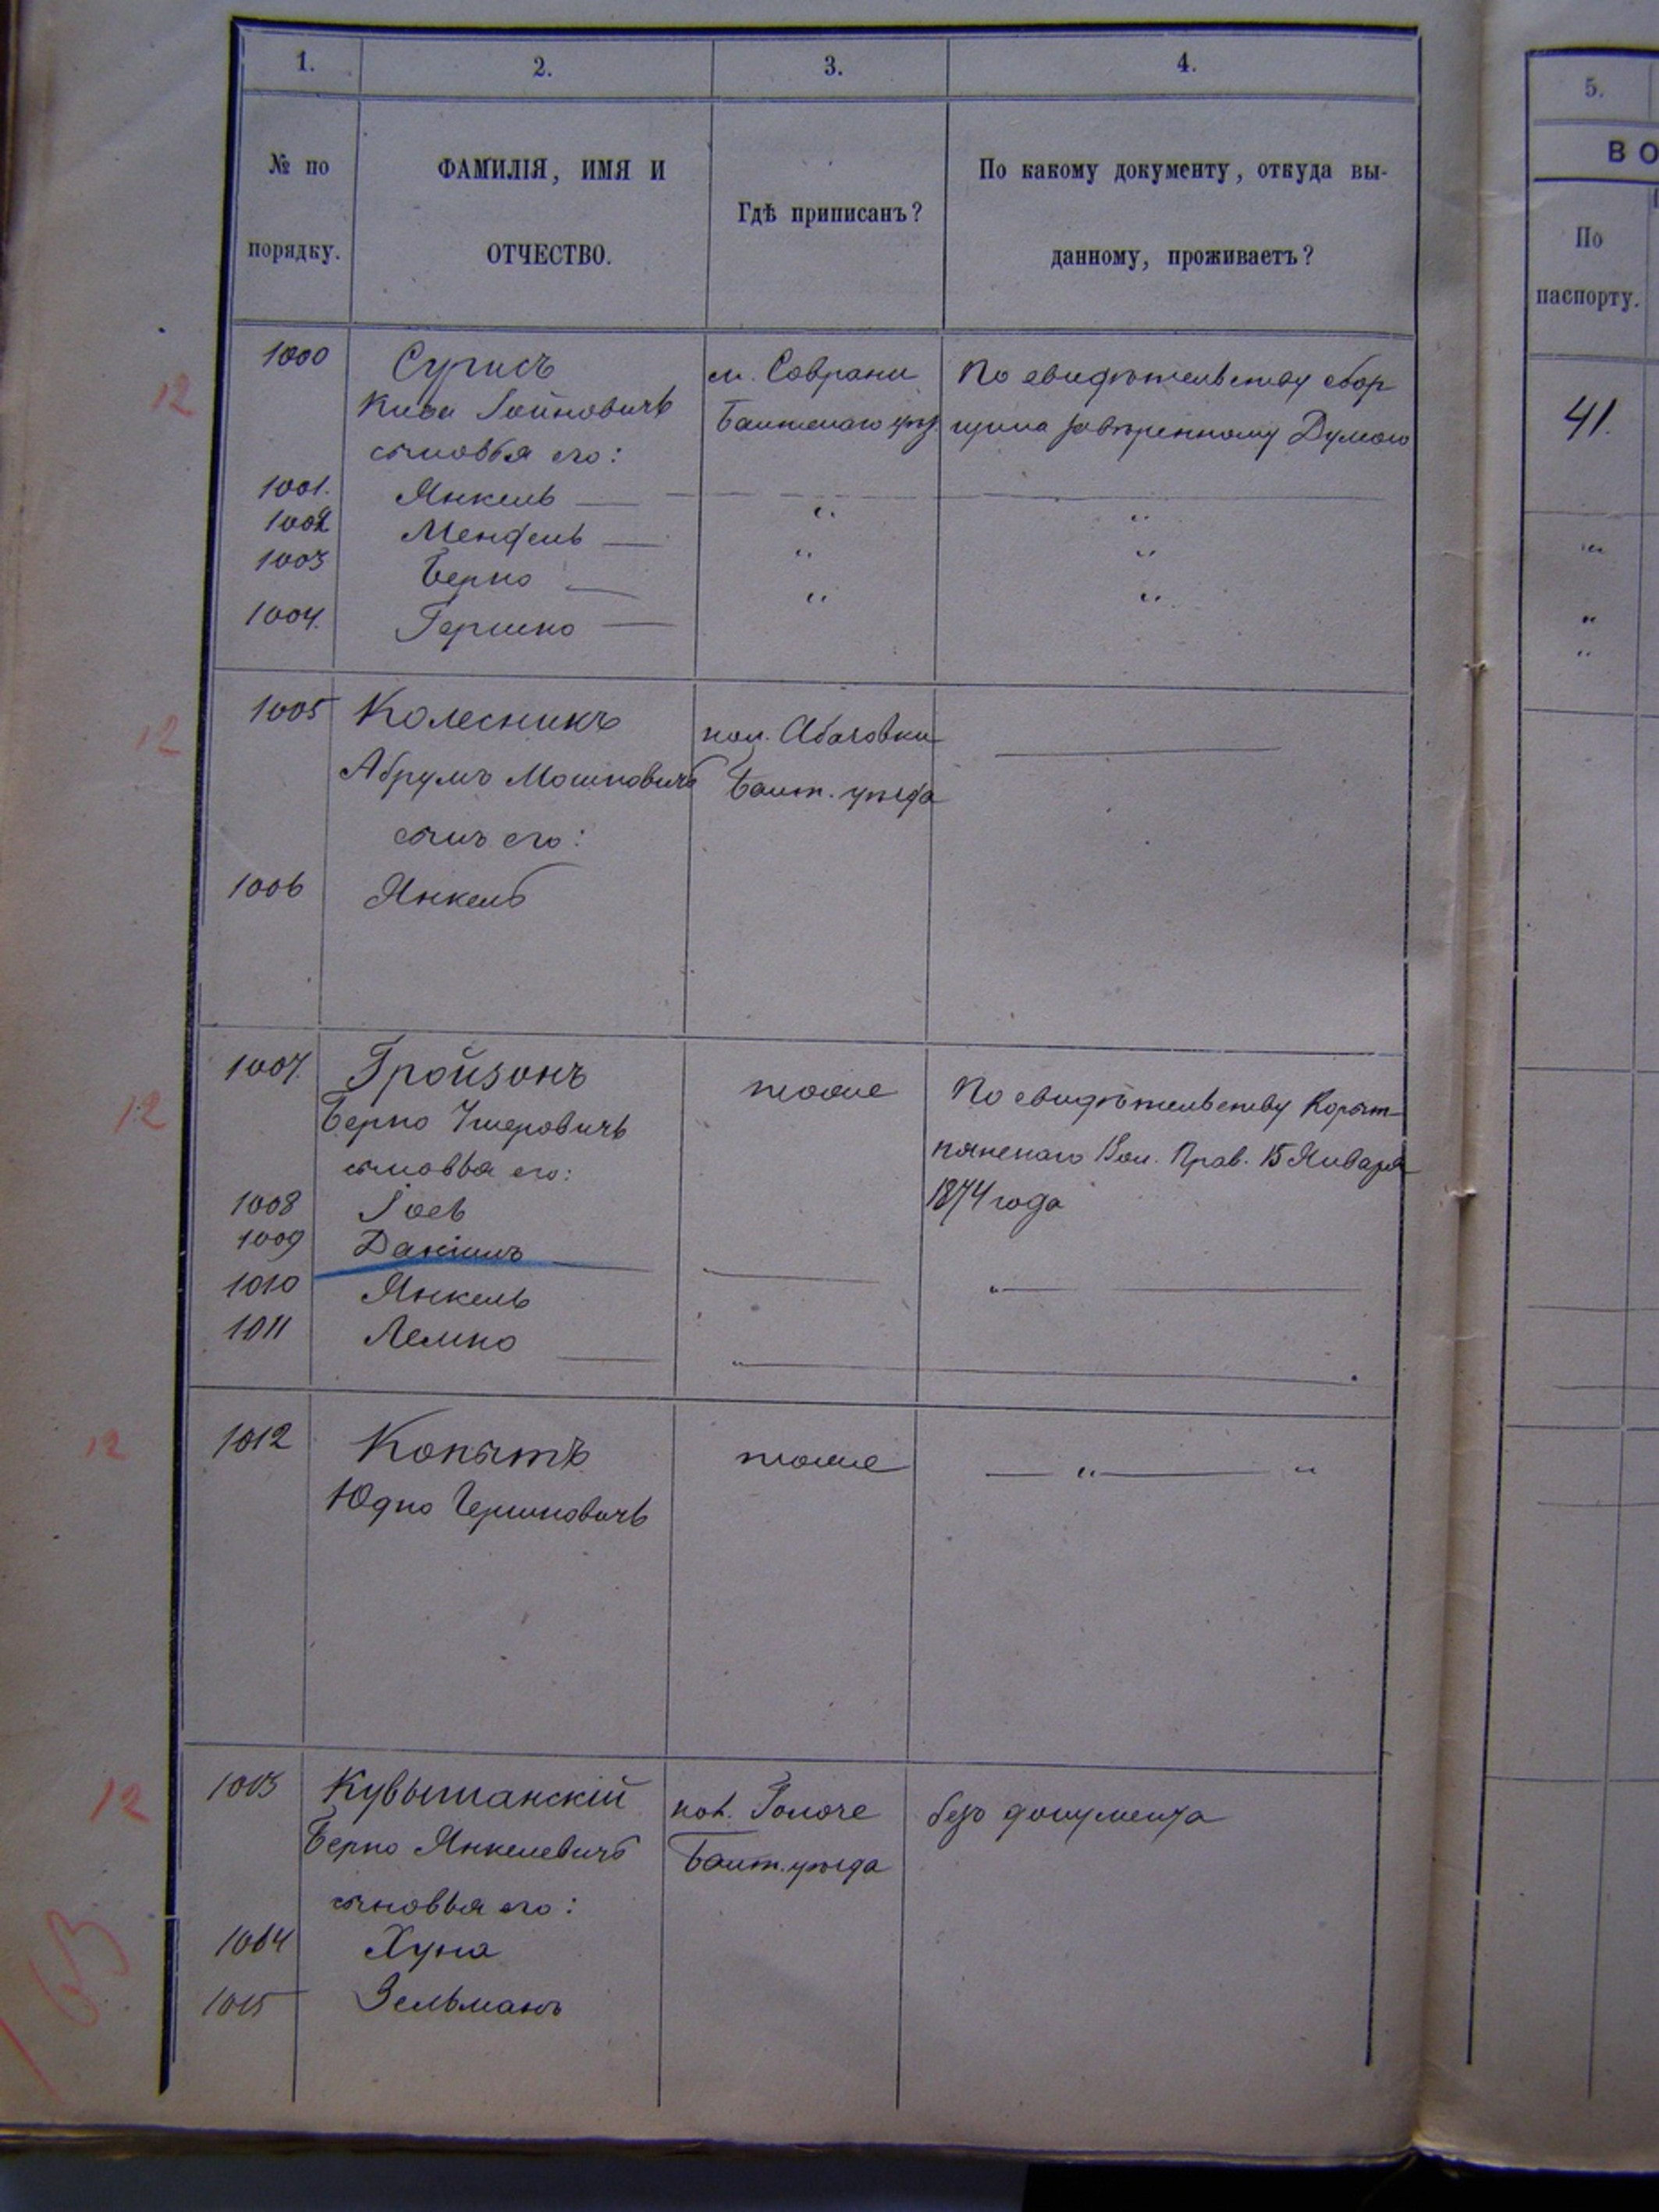 1. 2. 3. 4. 5.
№ по порядку.
ФАМИЛІЯ, ИМЯ И ОТЧЕСТВО.
Гдѣ приписанъ?
По какому документу, откуда вы-
данному, проживаетъ?
ВО
По
паспорту.
12
1000 Сугисъ м. Саврани По свидѣтельству сбор
Кива Гойновичъ Балтскаго уѣз. щика завѣренному Думою 41.
сыновья его:
1001. Янкель
1002 Мендель " "
1003 Берко " "
1004. Гершко " "
12
1005 Колесникъ кол. Абазовки
Абрумъ Мошковичъ Балт. уѣзда
сынъ его:
1006 Янкель
12
1007. Гройзонъ тоже По свидѣтельству Корыт-
Берко Ушеровичъ
нянскаго Вол. Прав. 15 Января
сыновья его:
1874 года
1008 Іось
1009 Даніилъ
1010 Янкель "
1011 Лемко "
12
1012 Копытъ тоже " "
Юдко Гершковичъ
12
1013 Кувышанскій кол. Голоче безъ документа
Берко Янкелевичъ Балт. уѣзда
сыновья его:
1014 Хуна
1015 Зельманъ
63